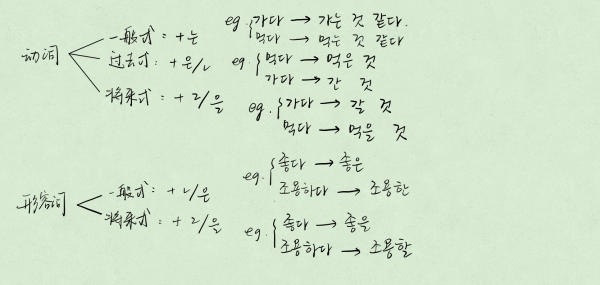 动词
一般式：+는 eg. 가다 → 가는 것 같다.
먹다 → 먹는 것 같다
过去式：+은/ㄴ eg. 먹다 → 먹은 것
가다 → 간 것
将来式：+ㄹ/을 eg. 가다 → 갈 것
먹다 → 먹을 것
形容词
一般式：+ㄴ/은 eg. 좋다 → 좋은
조용하다 → 조용한
将来式：+ㄹ/을 eg. 좋다 → 좋을
조용하다 → 조용할